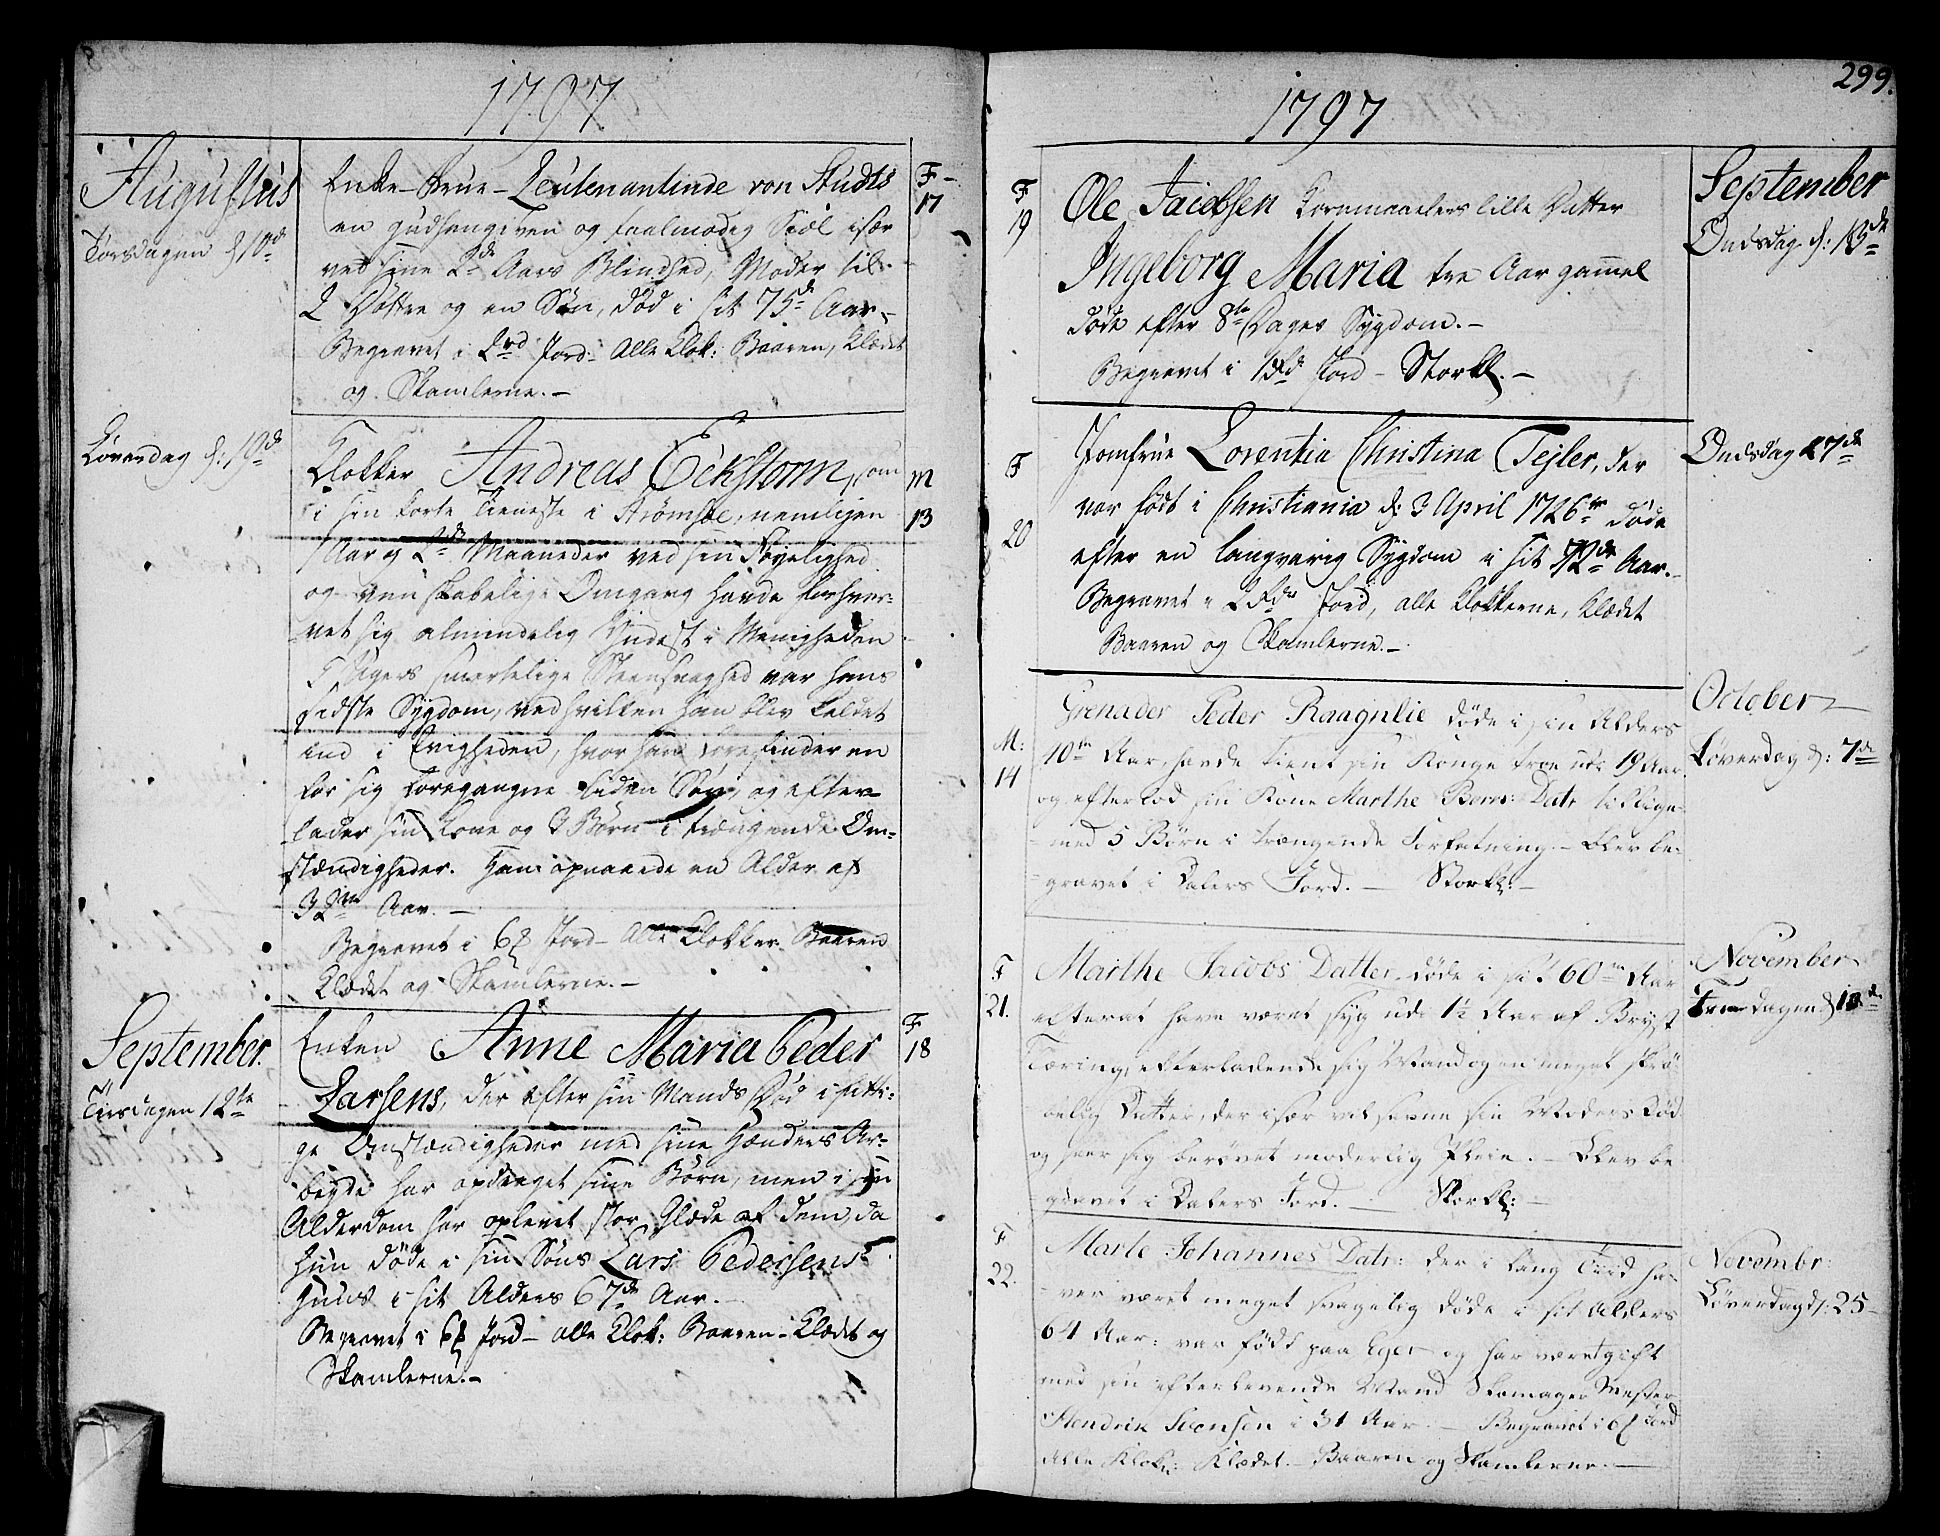 1797
Augustus
Torsdagen d 10de
Enke-Frue-Leutenantinde von Studts
en gudhengiven og taalmodig Siæl især
ved sine 2de Aars Blindhed, Moder til
2 Døttre og en Søn, død i sit 75de Aar.-
Begravet i 2rd Jord- Alle Klok: Baaren, Klædet
og Skamlerne.-
F-
17
Løverdag d: 19de
Klokker Andreas Eckstorm, som
i sin korte Tieneste i Strømsøe, nemligen
1 Aar og 2de Maaneder ved sin Føyelighed
og venskabelige Omgang havde forhver-
vet sig almindelig Yndest i Menigheden
5 Ugers smertelige Steensvaghed var hans
sidste Sygdom, ved hvilken han blev kaldet
ind i Evigheden, hvor han forefinder en
for sig foregangne liden Søn, og efter-
lader sin Kone og 3 Børn i trængende Om-
stændigheder. Han opnaaede en Alder af
32 Aar.-
Begravet i 6 Jord- Alle Klokker Baaren
Klædet og Skamlerne.-
M
13
September.
Tirsdagen 12te
Enken Anne Maria Peder
Larsens, der efter sin Mands Død i fatti:
ge Omstændigheder med sine Hænders Ar-
beyde har opdraget sine Børn, men i sin
Alderdom har oplevet stor Glæde af dem, da
hun døde i sin Søns Lars Pedersens
Huus i sit Alders 67de Aar.
Begravet i 6 Jord- alle Klok: Baaren-Klædet og
Skamlerne.-
F
18
1797
299.
F
19
Ole Jacobsen Kornmaalers lille Datter
Ingeborg Maria tre Aar gammel
døde efter 8te Dages Sygdom.-
Begravet i 1 Jord- Storkl.-
September
Onsdag d: 13de
F
20
Jomfrue Lorentia Christina Tejler, der
var født i Christiania d: 3 April 1726 døde
efter en langvarig Sygdom i sit 72de Aar.
Begravet i 2 Jord, alle Klokkerne, Klædet
Baaren og Skamlerne.-
Onsdag 27de
M:
14
Grenader Peder Raagnlie døde i sin Alders
40 Aar, havde tient sin Konge troe udi 19 Aar
og efterlod sin Kone Marthe Datr tillige
med 5 Børn i trængende Forfatning.- Blev be-
gravet i Dalers Jord.- Storkl:-
October
Løverdag d: 7de
F
21.
Marthe Jacobs Datter døde i sit 60 Aar
efterat have været syg udi 1½ Aar af Bryst
Tæring, efterladende sig Mand og en meget skrø
belig Datter, der især ved sin Moders Død
og seer sig berøvet moderlig Pleie.- Blev be
gravet i Dalers Jord.- Storkl:-
November
d 10de
F
22.
Marte Johannes Datr: der i lang Tiid ha-
ver været meget svagelig døde i sit Alders
64 Aar: var født paa Eger og har været gift
med sin efterlevende Mand Skomager Mester
Hendrik Svensen i 31 Aar.- Begravet i 6 Jord
Alle Klokr: Klædet.- Baaren og Skamlerne.-
Novembr:
Løverdag d: 25-